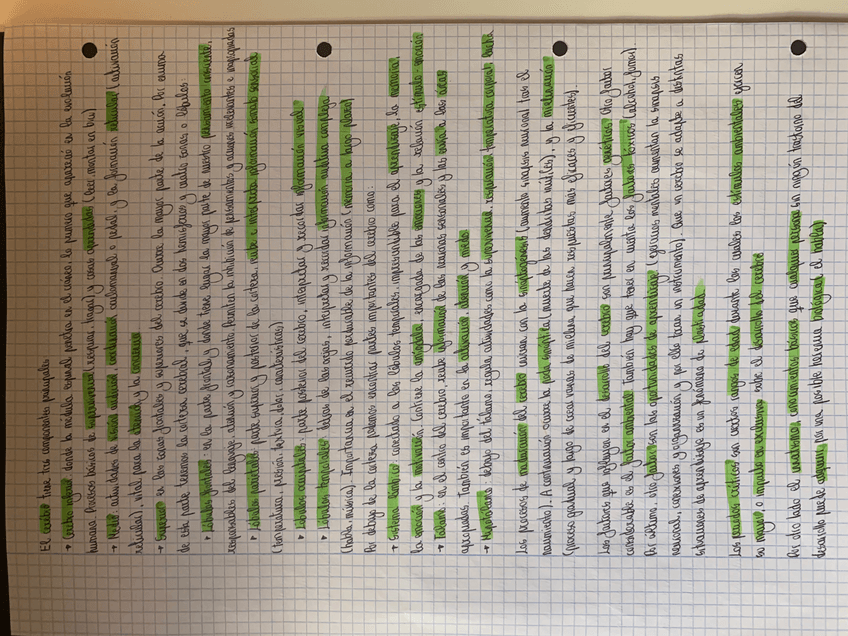 El cerebro tiene tres componentes principales
→ Cerebro inferior: donde la médula espinal penetra en el cráneo. La primera que apareció en la evolución
humana. Procesos básicos de supervivencia (respirar, tragar) y cosas aprendidas (leer, montar en bici)
→ Medio: actividades de visión, audición, coordinación ojo y la formación reticular (activación
reticular), vital para la atención y la conciencia
→ Superior: en las zonas frontales y superiores del cerebro. Ocurre la mayor parte de la acción. Por encima
de esta parte tenemos la corteza cerebral, que se divide en dos hemisferios y cuatro zonas o lóbulos:
→ Lóbulos frontales: en la parte frontal, y donde tiene lugar la mayor parte de nuestro pensamiento consciente,
responsables del lenguaje, atención y razonamiento. Permiten la inhibición de pensamientos y acciones irrelevantes e inapropiadas
→ Lóbulos parietales: parte superior y posterior de la corteza, recibe e interpreta información somato sensorial
(temperatura, presión, textura, dolor, características)
→ Lóbulos occipitales: parte posterior del cerebro, interpretar y recordar información visual
→ Lóbulos temporales: detrás de las orejas, interpretar y recordar información auditiva compleja
(habla, música). Importancia en el recuerdo perdurable de la información (memoria a largo plazo)
Por debajo de la corteza podemos encontrar partes importantes del cerebro como:
→ Sistema límbico: conectado a los lóbulos temporales, imprescindible para el aprendizaje, la memoria,
la emoción y la motivación. Contiene la amígdala, encargada de las emociones y la relación estímulo-emoción
→ Tálamo: en el centro del cerebro, recibe información de las neuronas sensoriales y las envía a las áreas
apropiadas. También es importante en la activación, atención y miedo
→ Hipotálamo: debajo del tálamo, regula actividades como la supervivencia, respiración, temperatura corporal,
Los procesos de maduración del cerebro inician con la sinaptogénesis (aumento sinapsis neuronal tras el
nacimiento). A continuación ocurre la poda sináptica (muerte de las sinapsis inútiles), y la mielinización
(proceso gradual y largo de crear vainas de mielina que hacen respuestas más eficaces y eficientes).
Los factores que influyen en el desarrollo del cerebro son principalmente factores genéticos. Otro factor
considerable es el factor ambiental. También hay que tener en cuenta los factores tóxicos (alcohol, fumar).
Por último, otro factor son las oportunidades de aprendizaje (ejercicios mentales aumentan la sinapsis
neuronal, conexiones y organización, y por ello tocar un instrumento). Que un cerebro se adapte a distintas
situaciones de aprendizaje es un fenómeno de plasticidad.
Los periodos críticos son ciertos rangos de edad durante los cuales los estímulos ambientales ejercen
su mayor o impacto exclusivo sobre el desarrollo del cerebro
Por otro lado el innatismo, conocimientos básicos que cualquier persona sin ningún trastorno del
desarrollo puede adquirir por una posible herencia biológica (el habla)